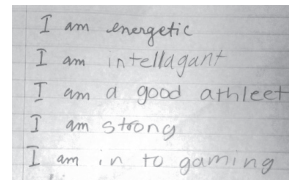 I am energetic
I am intellagant
I am a good athleet
I am strong
I am in to gaming